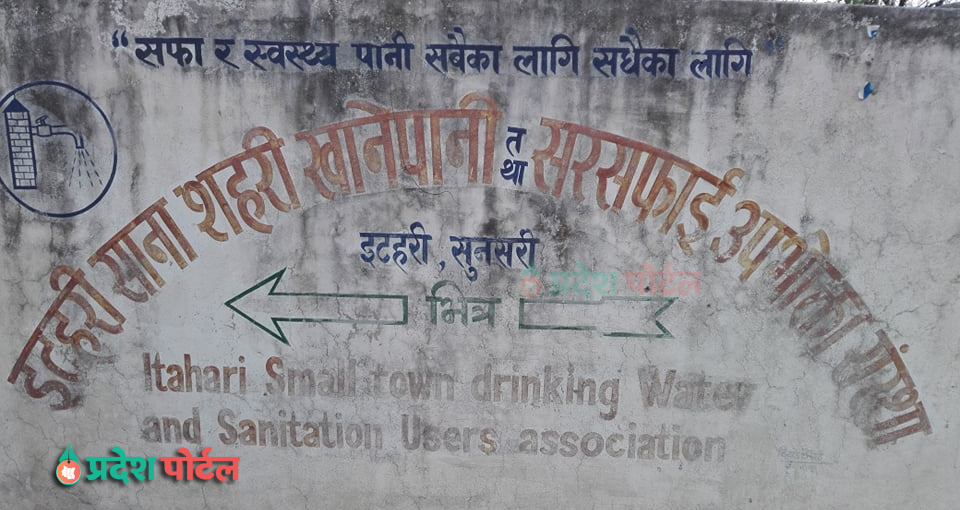 “सफा र स्वस्थ्य पानी सबैका लागि सधैका लागि”
इटहरी साना शहरी खानेपानी तथा सरसफाई उपभोक्ता संस्था
इटहरी, सुनसरी
प्रदेश पोर्टल
भित्र
Itahari Small town drinking Water
and Sanitation Users association
प्रदेश पोर्टल